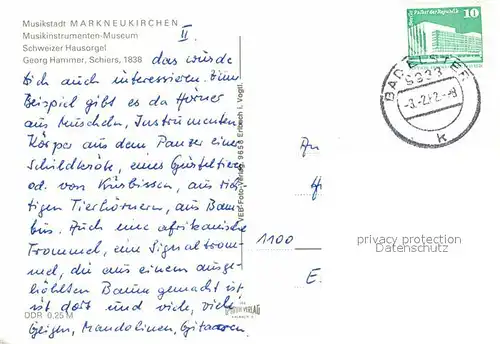 Musikstadt MARKNEUKIRCHEN
Musikinstrumenten-Museum
Schweizer Hausorgel
Georg Hammer, Schiers, 1838
II
das würde
Dich auch interessieren. Zum
Beispiel gibt es da Hörner
aus Muscheln, Instrumenten
Körper aus dem Panzer einer
Schildkröte, eines Gürteltieres
od. von Kürbissen, aus rich-
tigen Tierhörnern, aus Bam-
bus. Auch eine afrikanische
Trommel, eine Signaltrom-
mel, die aus einem ausge-
höhlten Baum gemacht ist
ist dort und viele, viele
Geigen, Mandolinen, Gitarren
DDR 0,25 M
VEB Foto-Verlag, 9656 Erlbach i. Vogtl.
VERLAG
Palast der Republik
10
BAD ELSTER
9933
-3.-2.82.-8
k
An
1100
E.
privacy protection
VERONIKAS